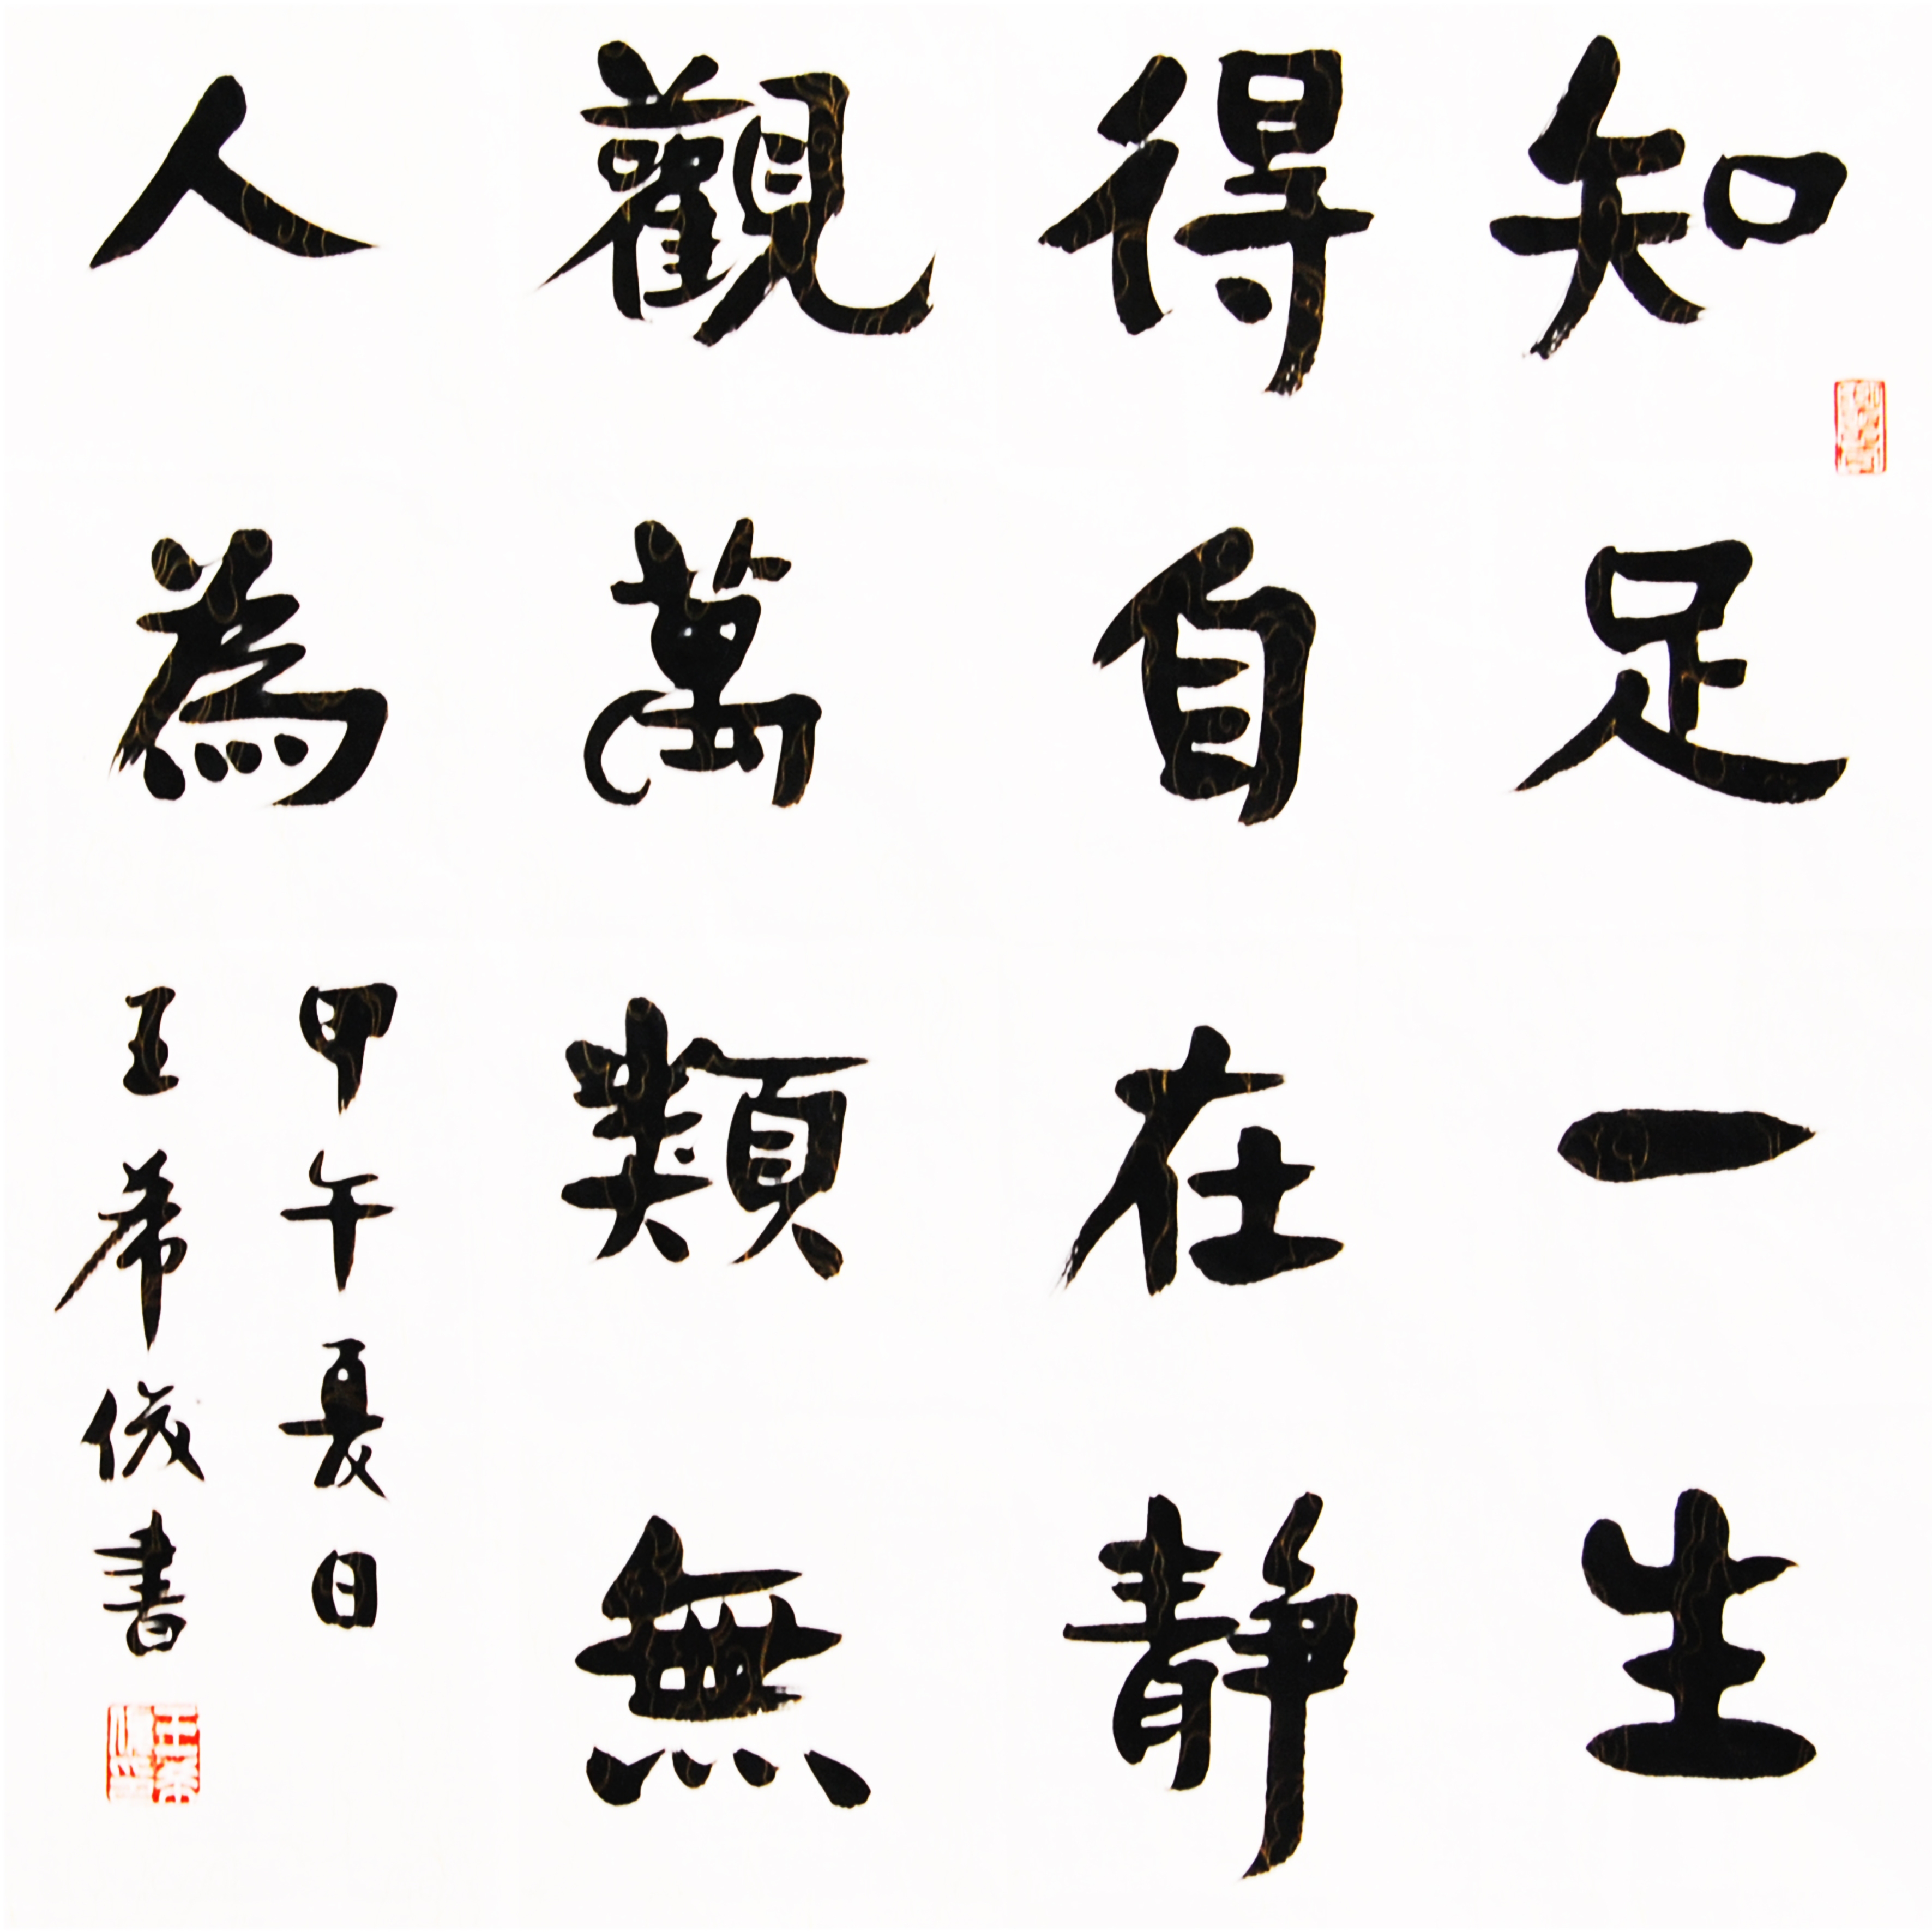 知足一生
得自在靜
觀萬類無
人為
甲午夏日
王希俊書